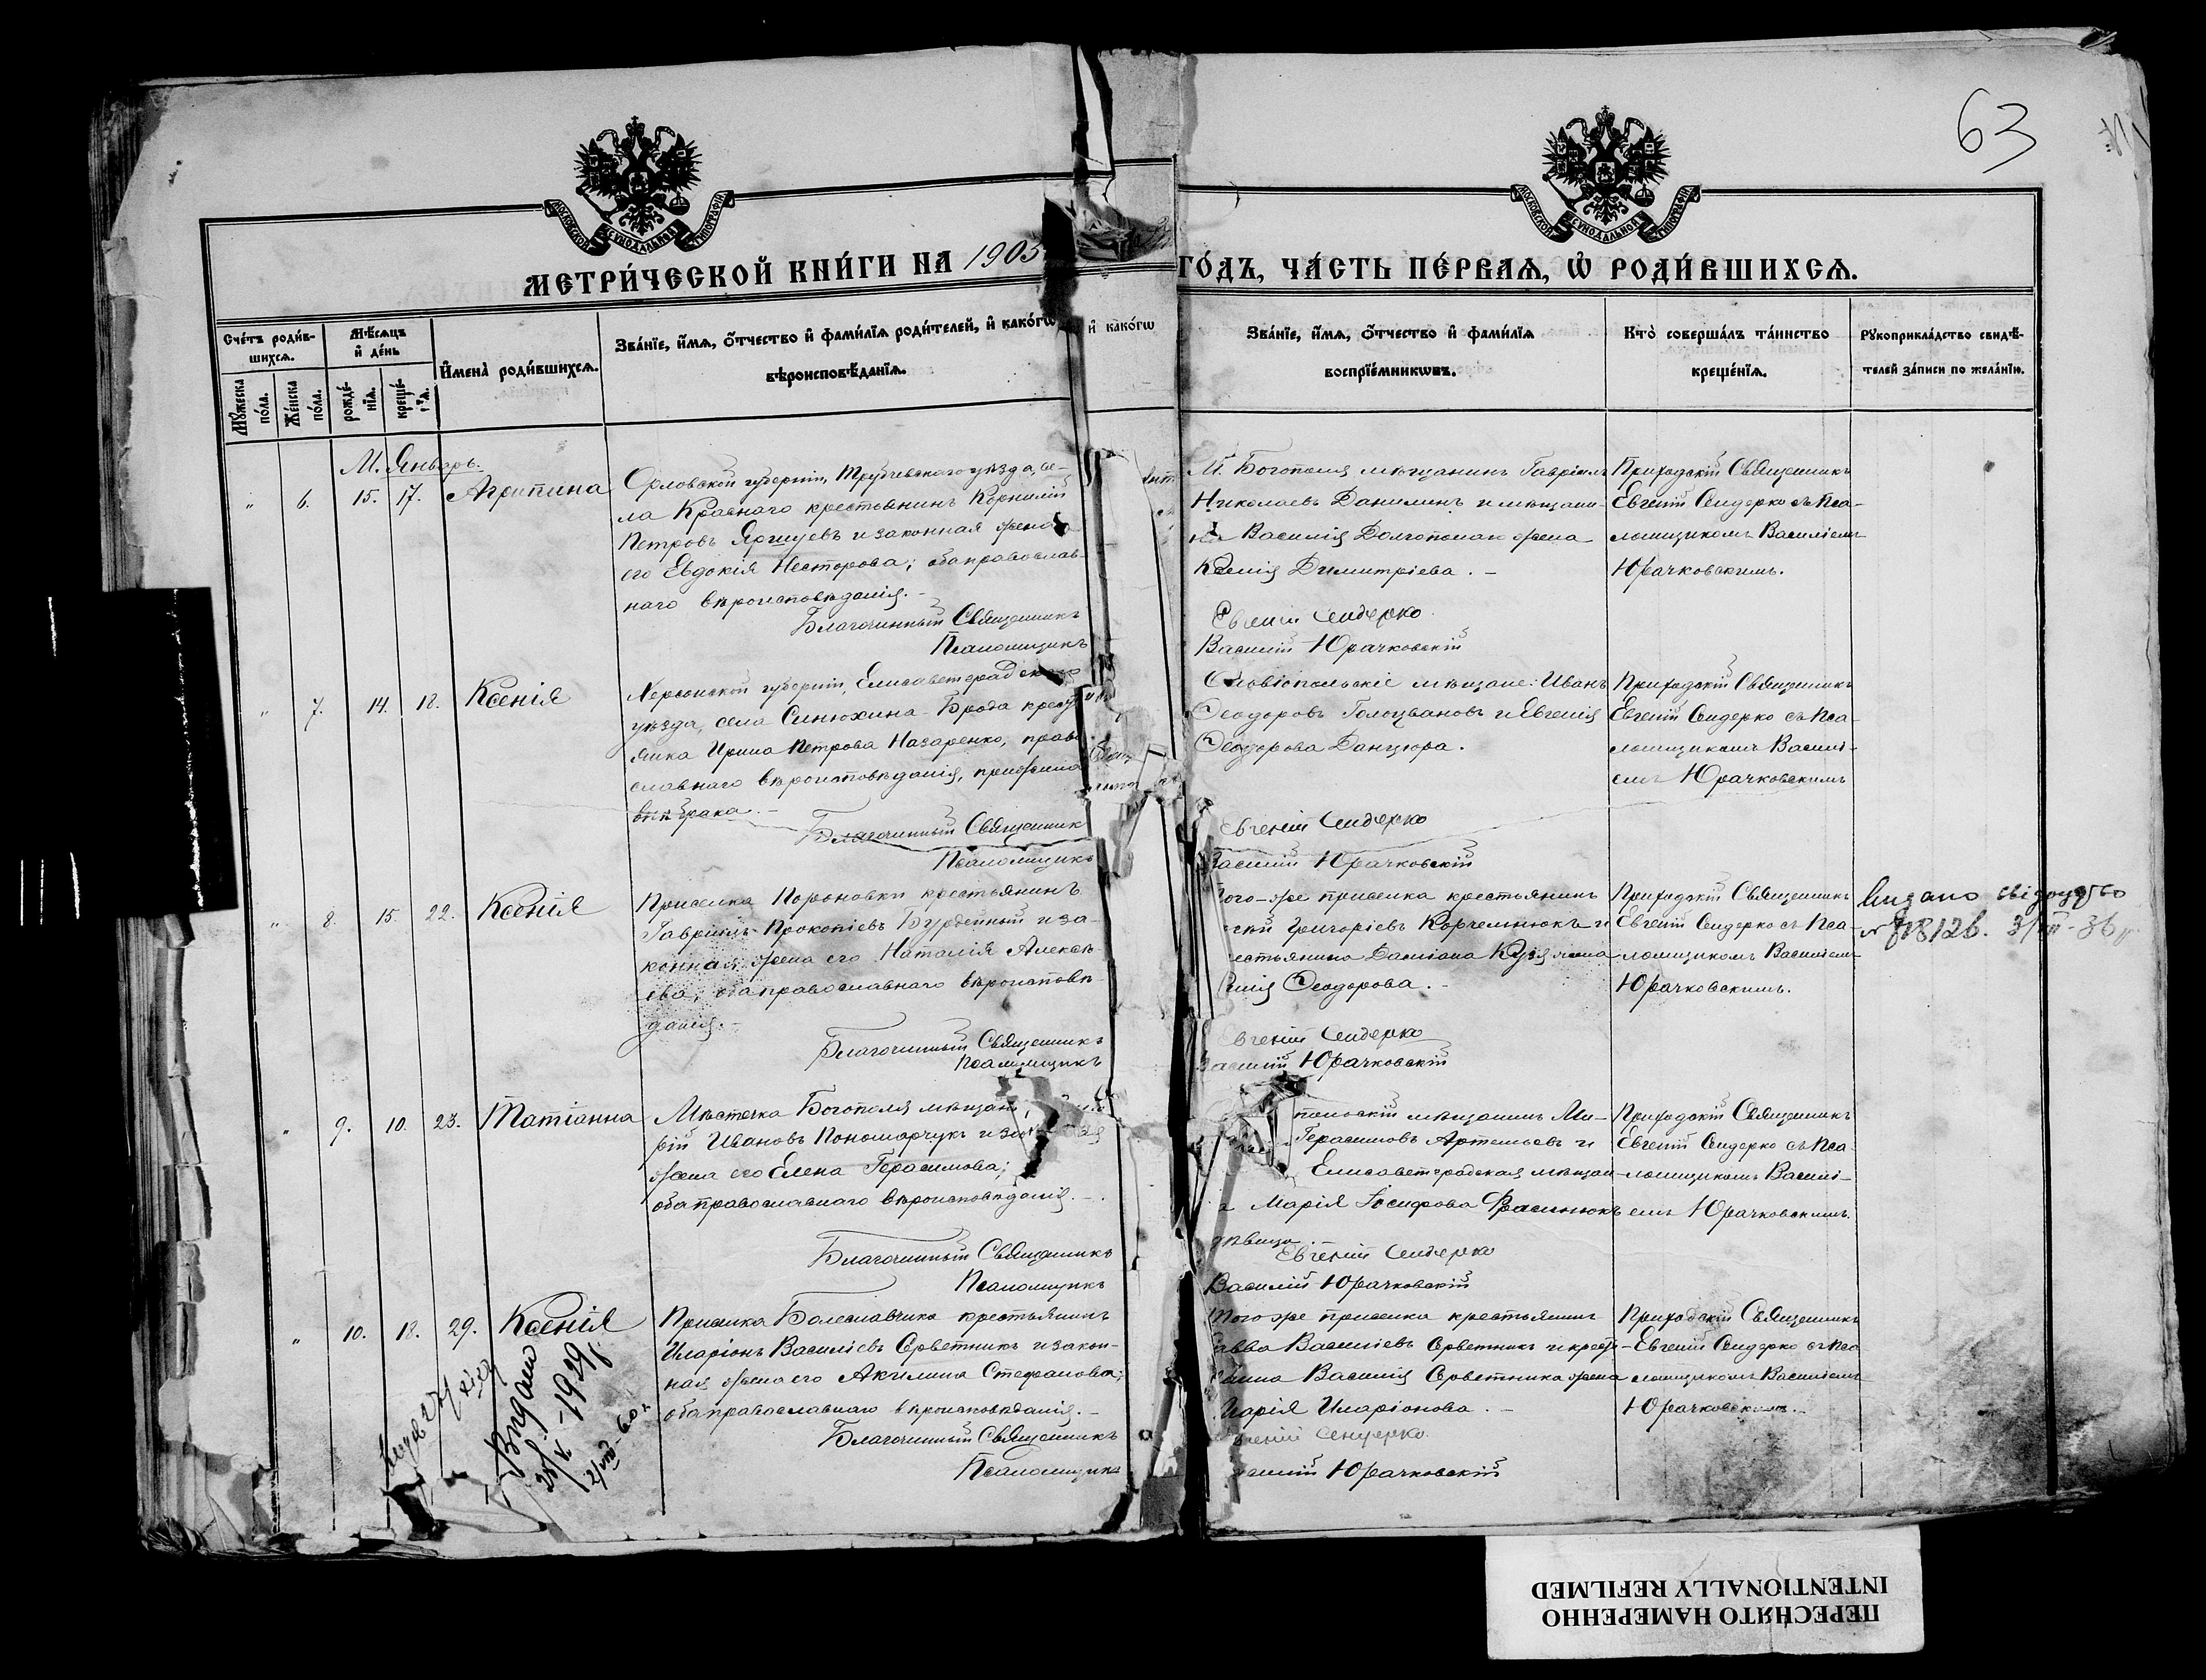 63
МОСКОВСКОЙ СѴНОДАЛЬНОЙ ТИПОГРАФІИ
МОСКОВСКОЙ СѴНОДАЛЬНОЙ ТИПОГРАФІИ
МЕТРИ́ЧЕСКОЙ КНИ́ГИ НА 1905
ГО́ДЪ, ЧА́СТЬ ПЕ́РВАѦ, Ѡ РОДИ́ВШИХСѦ.
Сче́тъ роди́в-
шихсѧ.
Мꙋ́жеска по́ла.
Же́нска по́ла.
Мѣ́сѧцъ
и де́нь
рожде́-
нїѧ.
креще́-
нїѧ.
Имена̀ роди́вшихсѧ.
Зва́нїе, и́мѧ, о́тчество и фами́лїѧ роди́телей, и како́гѡ
вѣроисповѣ́данїѧ.
и како́гѡ
Зва́нїе, и́мѧ, о́тчество и фами́лїѧ
воспрїе́мникѡвъ.
Кто̀ соверша́лъ та́инство
креще́нїѧ.
Рꙋкоприкла́дство свидѣ́-
телей за́писи по жела́нїю.
М. Январь.
" 6. 15. 17. Агрипина
Орловской губерніи, Трубчевскаго уѣзда, се-
ла Краснаго крестьянинъ Корнилій
Петровъ и законная жена
его Евдокія Несторова; оба православ-
наго вѣроисповѣданія.-
Благочинный Священникъ
Псаломщикъ
М. Богополя мѣщанинъ Гавріилъ
Николаевъ Данилинъ и мѣщани-
на Василія жена
Ксенія Димитріева.-
Евгеній Сендерко
Василій Юрачковскій
Приходскій Священникъ
Евгеній Сендерко съ Пса-
ломщикомъ Василіемъ
Юрачковскимъ.
" 7. 14. 18. Ксенія
Херсонской губерніи, Елисаветградскаго
уѣзда, села Синюхина-Брода крест
янка Ирина Петрова Назаренко, право
славнаго вѣроисповѣданія, прижила
внѣ брака.-
Благочинный Священник
Псаломщикъ
Ольвіопольскіе мѣщане: Иванъ
Ѳеодоровъ Голоцвановъ и Евгенія
Ѳеодорова Данцюра.
Евгеній Сендерко
Василій Юрачковскій
Приходскій Священникъ
Евгеній Сендерко съ Пса-
ломщикомъ Василі-
емъ Юрачковскимъ
" 8. 15. 22. Ксенія
Приселка крестьянинъ
Гавріилъ Прокопіевъ и за-
конная жена его Наталія Алексѣ-
ева; оба православнаго вѣроисповѣ-
данія.-
Благочинный Священникъ
Псаломщикъ
того-же приселка крестьянинъ
Григоріевъ Корчемнюкъ и
Даміана жена
Ѳеодорова.-
Евгеній Сендерко
Василій Юрачковскій
Приходскій Священникъ
Евгеній Сендерко съ Пса-
ломщикомъ Василіемъ
Юрачковскимъ.
Видано свідоцтво
" 9. 10. 23. Татіанна
Мѣстечка Богополя мѣщан
рій Ивановъ Пономарчукъ и законная
жена его Елена Герасимова;
оба православнаго вѣроисповѣданія.-
Благочинный Священникъ
Псаломщикъ
польскій мѣщанинъ Ми-
Герасимовъ Артемьевъ и
Елисаветградская мѣщан-
а Марія Іосифова
дѣвица.
Евгеній Сендерко
Василій Юрачковскій
Приходскій Священникъ
Евгеній Сендерко съ Пса-
ломщикомъ Василі-
емъ Юрачковскимъ.
" 10. 18. 29. Ксенія
Приселка Болеславчика крестьянинъ
Иларіонъ Василіевъ Серветникъ и закон-
ная жена его Акилина Стефанова;
оба православнаго вѣроисповѣданія.-
Благочинный Священникъ
Псаломщикъ
Того же приселка крестьянинъ
Савва Василіевъ Серветникъ и крестъ-
янина Василія Серветника жена
Марія Иларіонова.-
Евгеній Сендерко
Василій Юрачковскій
Приходскій Священникъ
Евгеній Сендерко съ Пса
ломщикомъ Василіемъ
Юрачковскимъ.
Видано
1929
ПЕРЕСНЯТО НАМЕРЕННО
INTENTIONALLY REFILMED